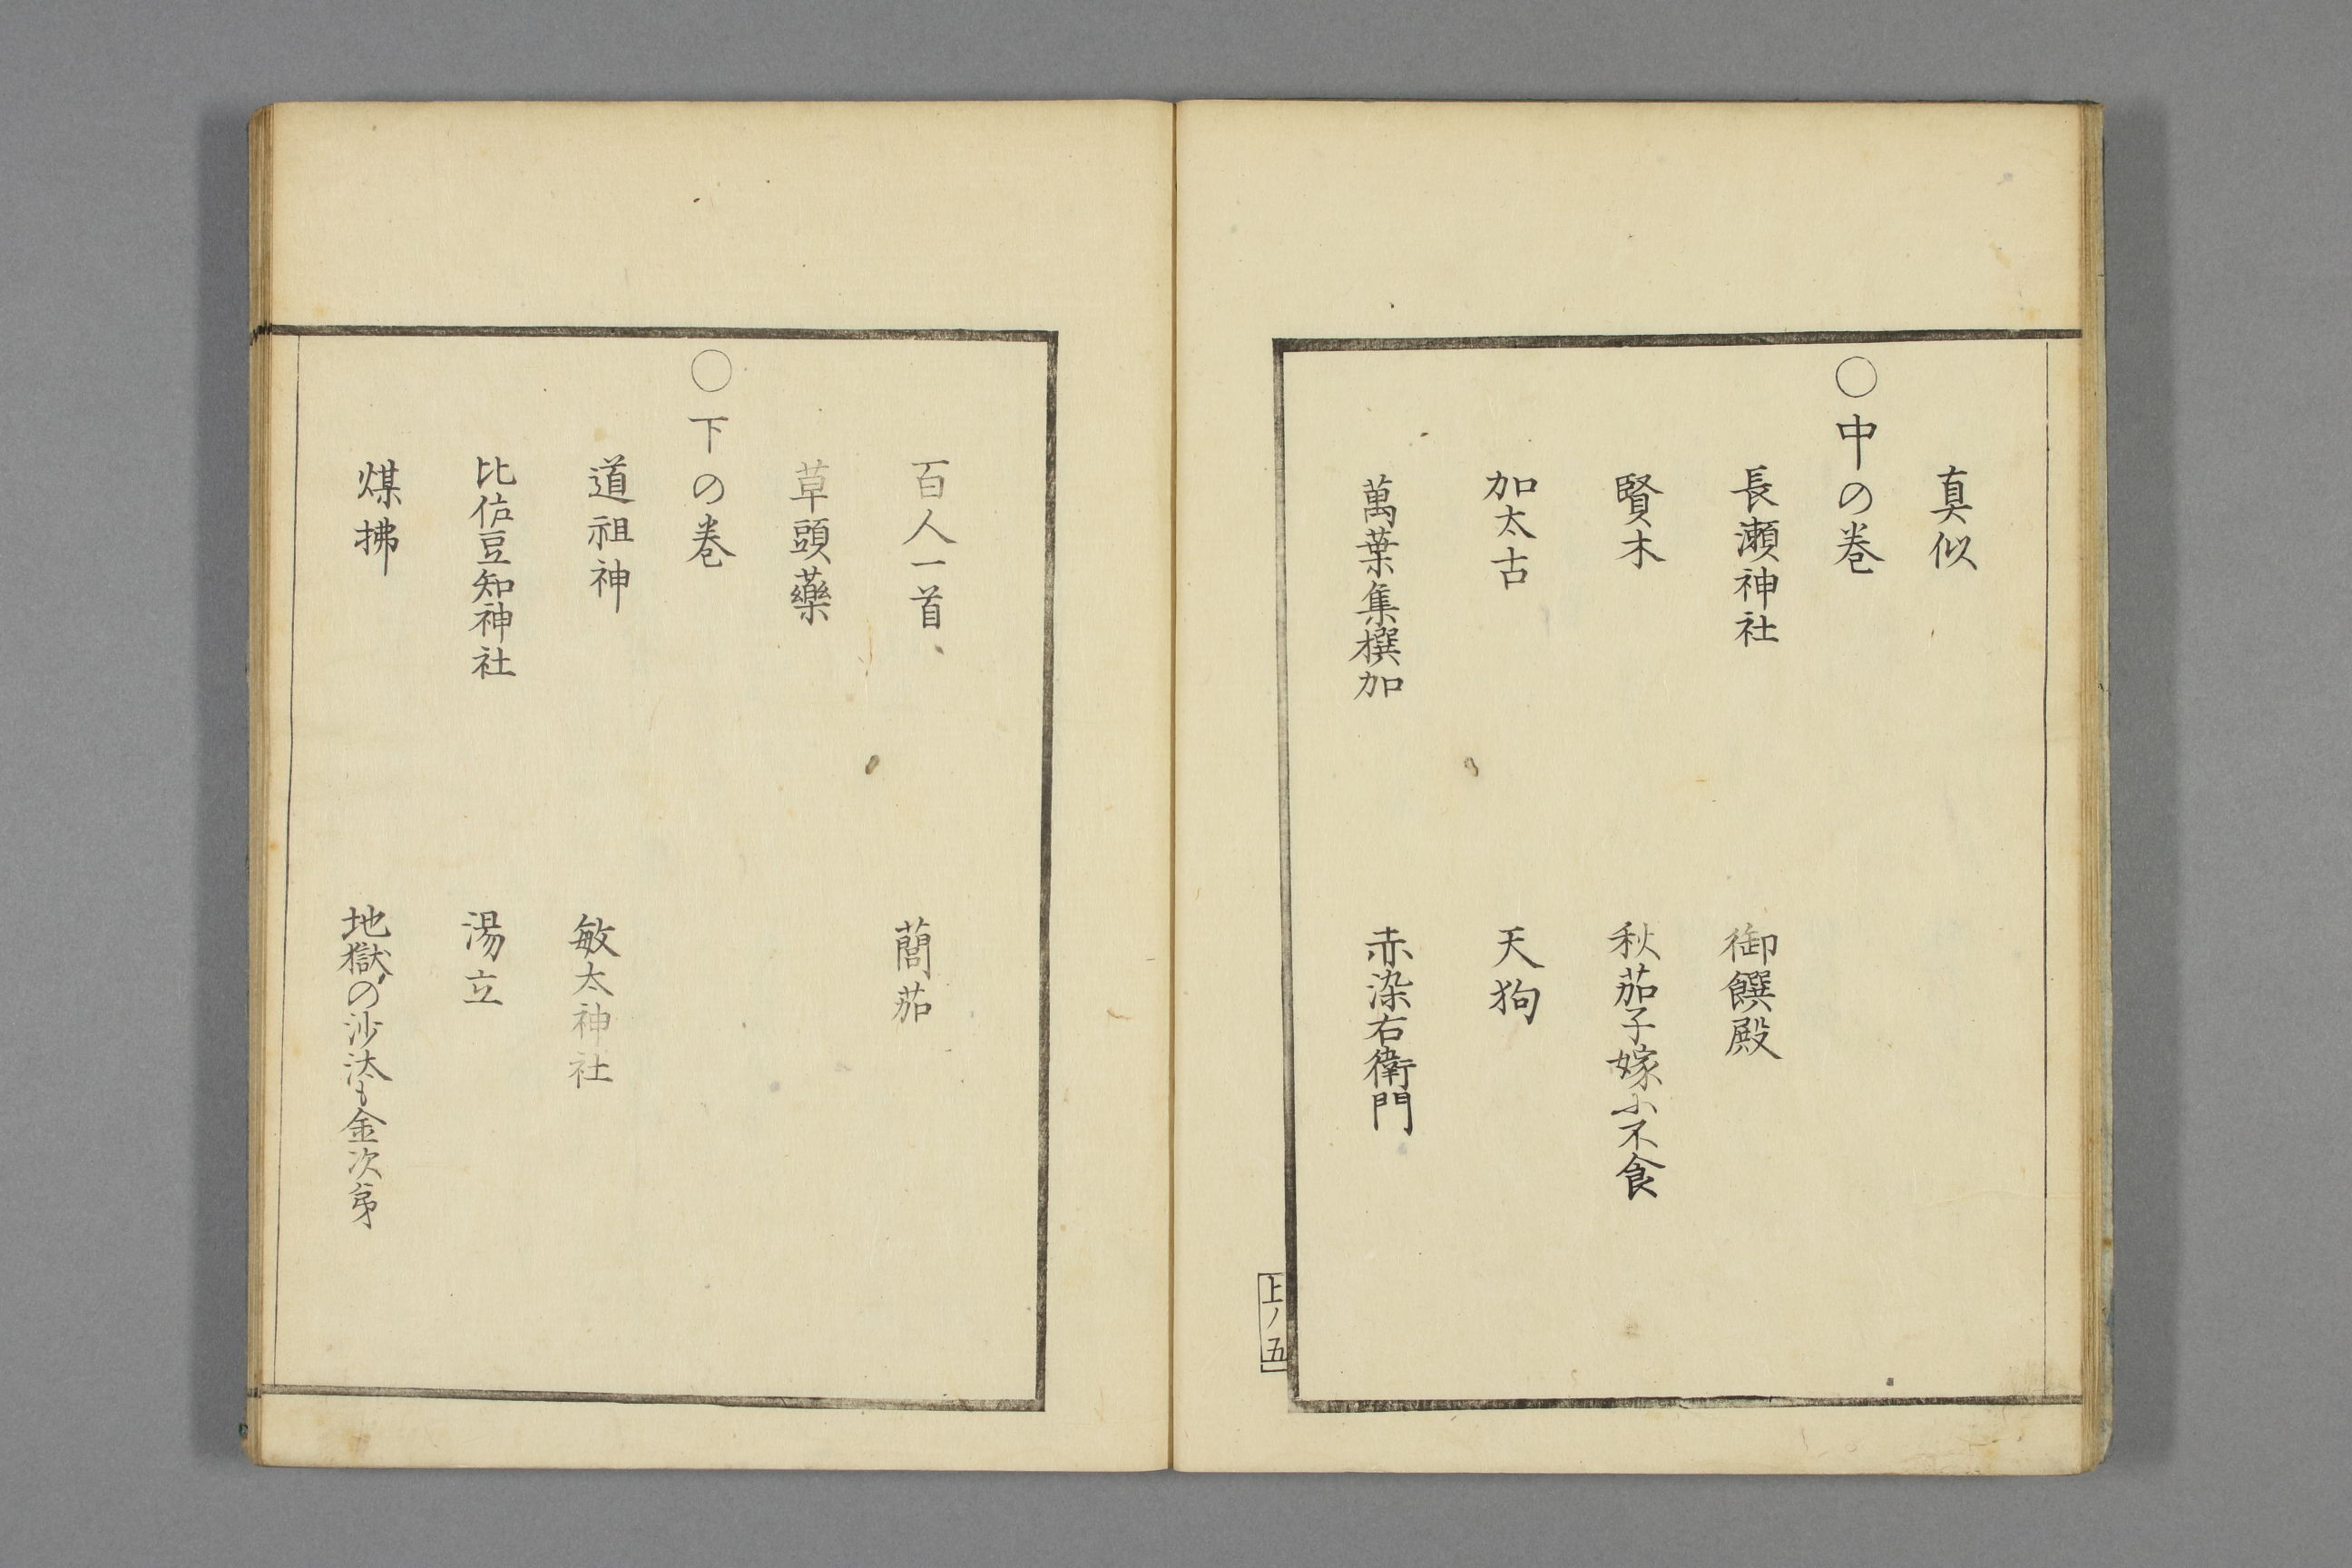 真似
○中の巻
長瀬神社
御饌殿
賢木
秋茄子嫁小不食
加太古
天狗
萬葉集撰加
赤染右衛門
上ノ五
百人一首
藺茄
草頭藥
○下の巻
道祖神
敏太神社
比佐豆知神社
湯立
煤拂
地獄の沙汰も金次第